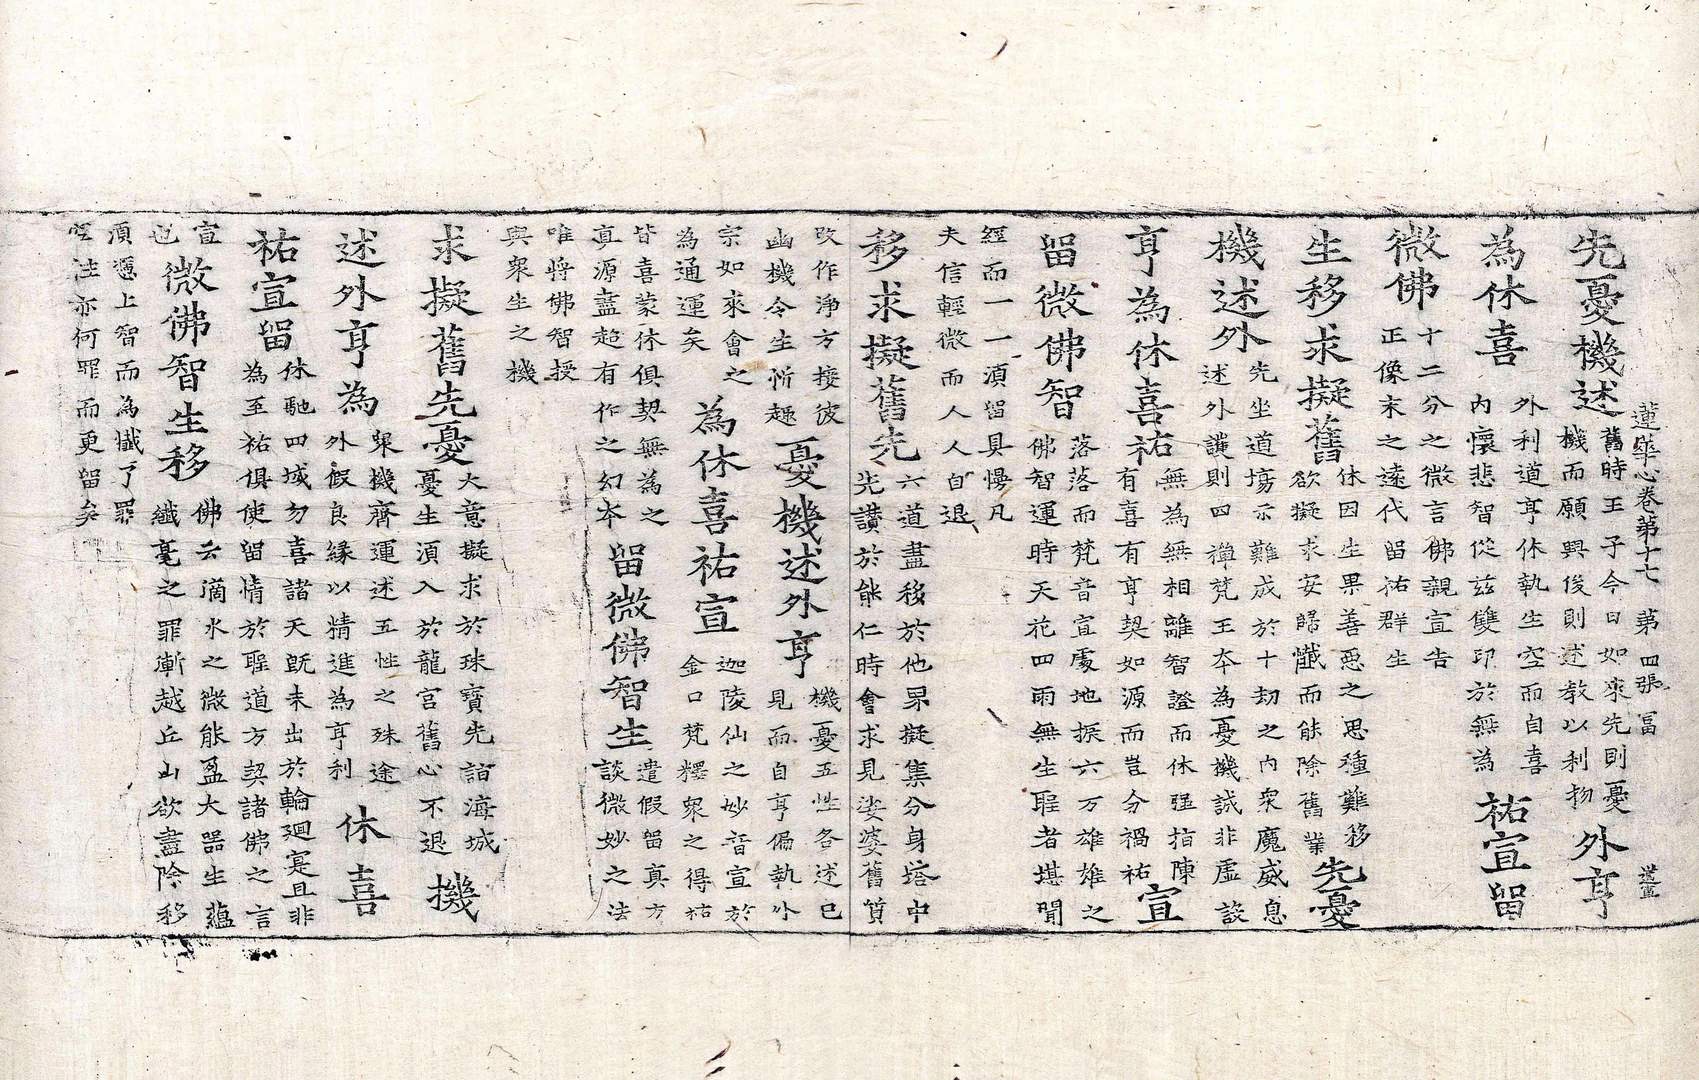 蓮華心卷第十七 第四張 冨
先憂機述
舊時王子今日如來先則憂
機而願興後則述教以利物
外亨
為休喜
外利道亨休執生空而自喜
內懷悲智從茲雙印於無為
祐宣留
微佛
十二分之微言佛親宣告
正像末之遠代留祐群生
生移求擬舊
休因生果善惡之思種難移
欲擬求安歸懺而能除舊業
先憂
機述外
先坐道場示難成於十劫之內衆魔威息
述外護則四禪梵王本為憂機誠非虛設
亨為休喜祐
無為無相離智證而休强指陳
有喜有亨契如源而豈分禍祐
宣
留微佛智
落落而梵音宣處地振六万雄雄之
佛智運時天花四雨無生聖者堪聞
經而一一須留具慢凡
夫信輕微而人人自退
移求擬舊先
六道盡移於他界擬集分身塔中
先讚於能仁時會求見娑婆舊質
改作淨方接彼
幽機令生忻趣
憂機述外亨
機憂五性各述已
見而自亨偏執外
宗如來會之
為通運矣
為休喜祐宣
迦陵仙之妙音宣於
金口梵釋衆之得祐
皆喜蒙休俱契無為之
真源盡超有作之幻本
留微佛智生
遣假留真方
談微妙之法
唯將佛智授
與衆生之機
求擬舊先憂
大意擬求於珠寶先詣海城
憂生須入於龍宮舊心不退
機
述外亨為
衆機齊運述五性之殊途
外假良緣以精進為亨利
休喜
祐宣留
休馳四域勿喜諸天旣未出於輪廻寔且非
為至祐俱使留情於聖道方契諸佛之言
宣
也
微佛智生移
佛云滴水之微能盈大器生蘊
纖毫之罪漸越丘山欲盡除移
須憑上智而為懺了罪
性亦何罪而更留矣